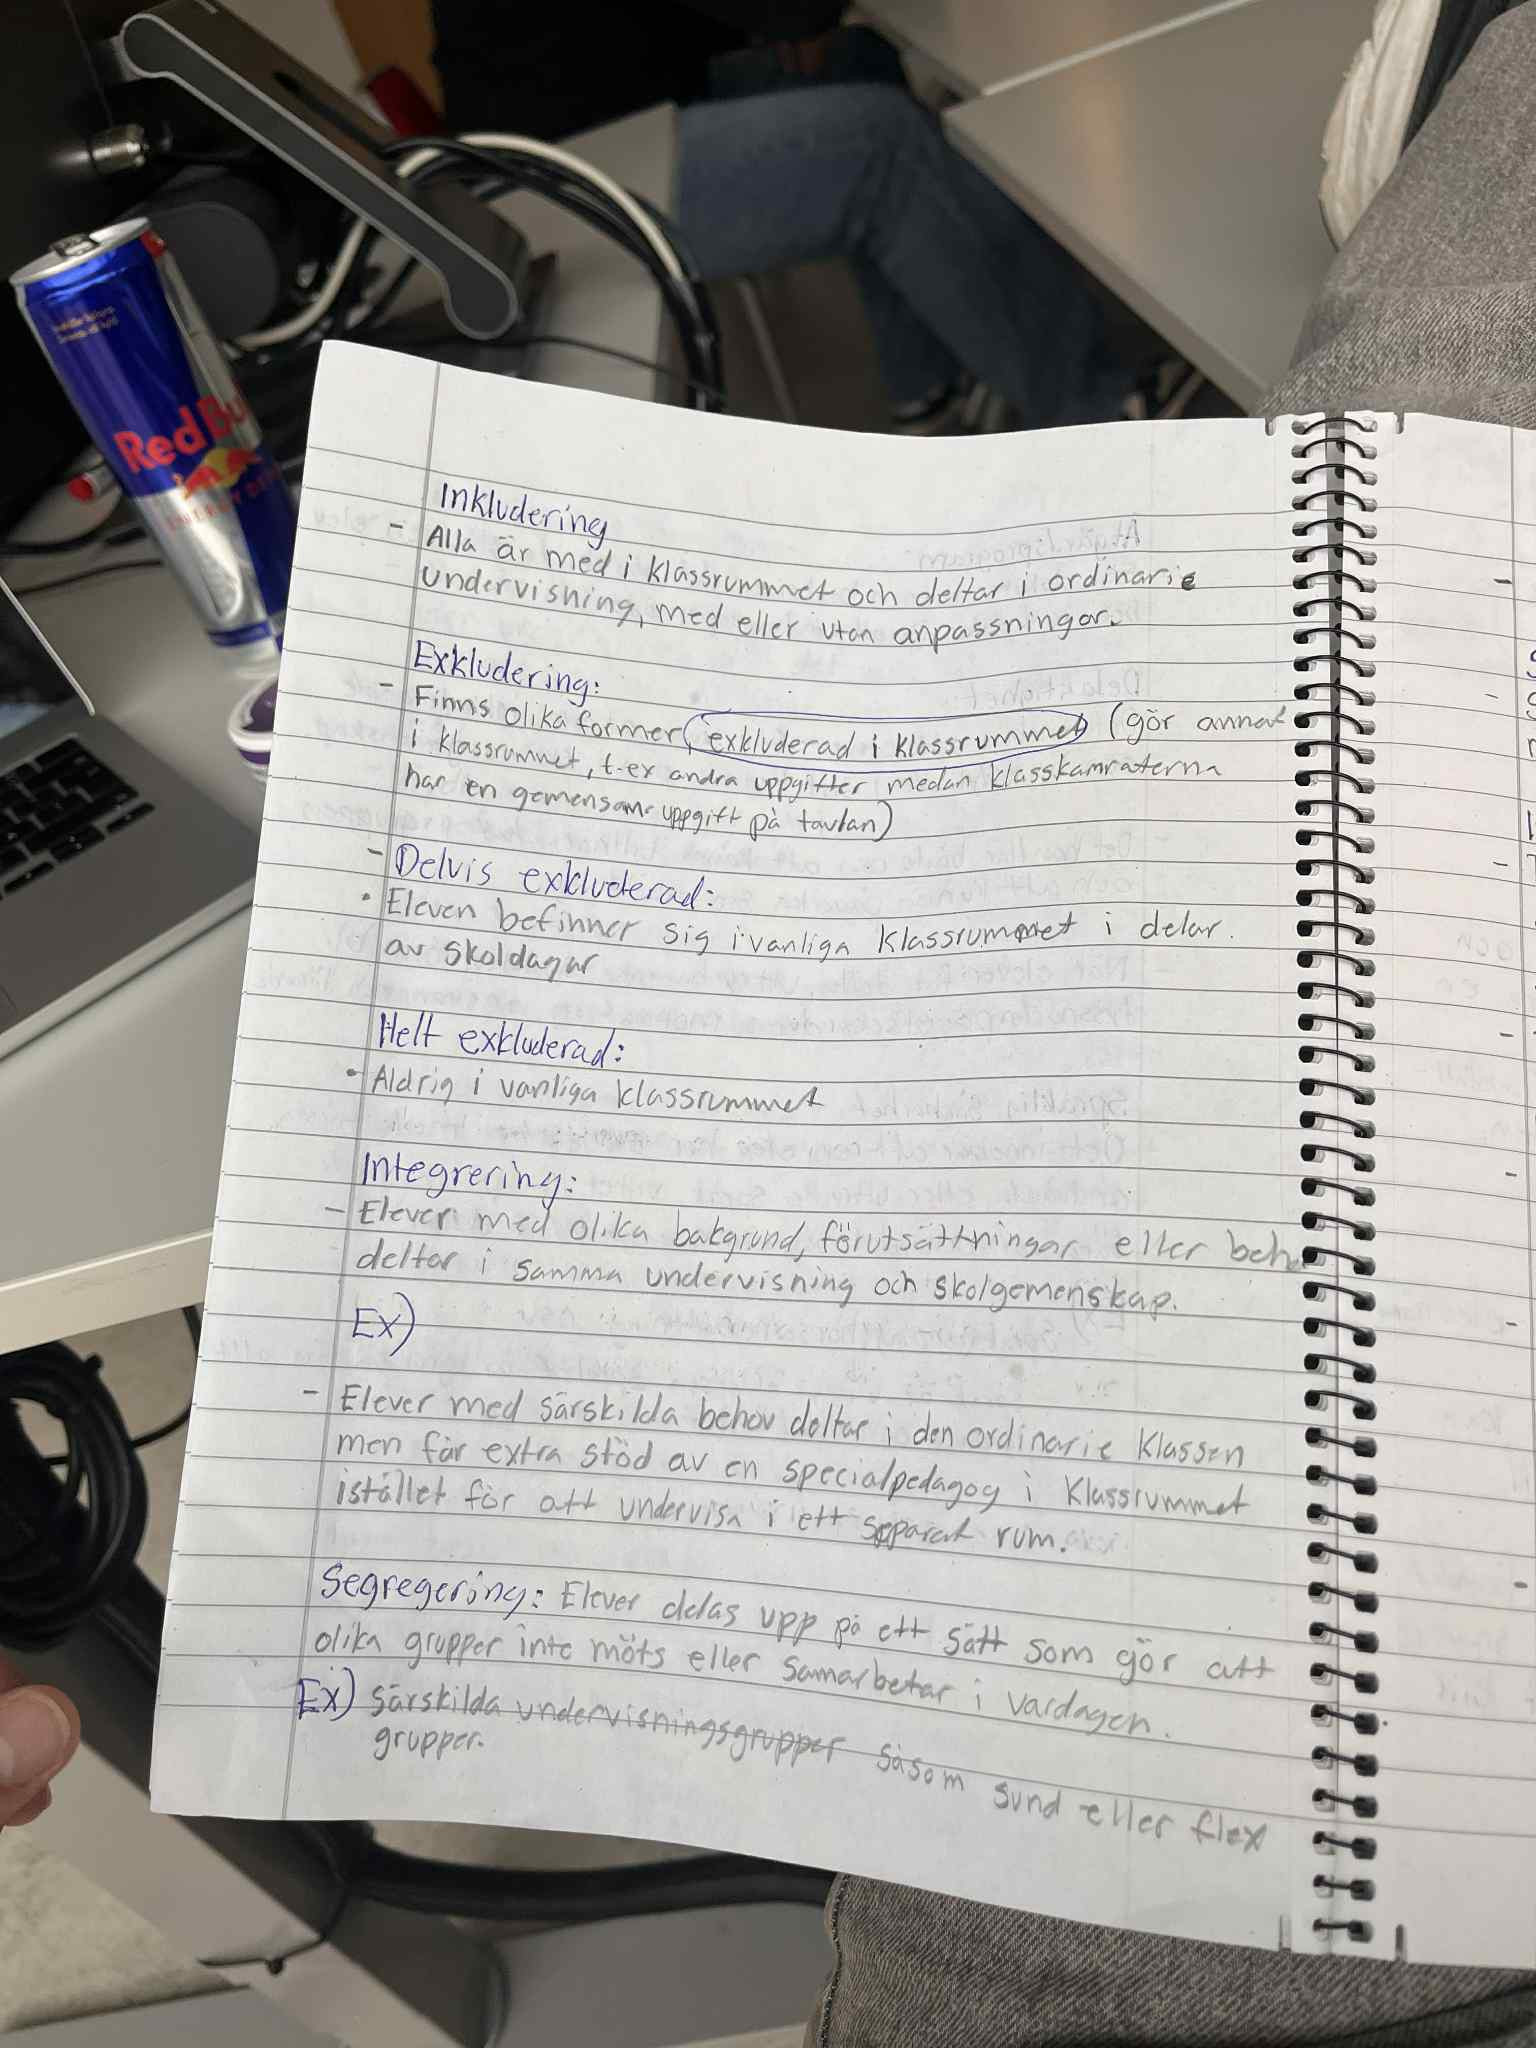 Red Bu
Inkludering
- Alla är med i klassrummet och deltar i ordinarie
undervisning, med eller utan anpassningar.
Exkludering:
- Finns olika former, exkluderad i klassrummet (gör annat
i klassrummet, t-ex andra uppgifter medan klasskamraterna
har en gemensam uppgift på tavlan)
- Delvis exkluderad:
• Eleven befinner sig i vanliga klassrummet i delar.
av skoldagar
Helt exkluderad:
• Aldrig i vanliga klassrummet
Integrering:
- Elever med olika bakgrund, förutsättningar eller beh
deltar i samma undervisning och skolgemenskap.
Ex)
- Elever med särskilda behov deltar i den ordinarie klassen
men får extra stöd av en specialpedagog i klassrummet
istället för att undervisa i ett separat rum.
Segregering: Elever delas upp på ett sätt som gör att
olika grupper inte möts eller samarbetar i vardagen.
Ex) särskilda undervisningsgrupper såsom sund eller flex
grupper.